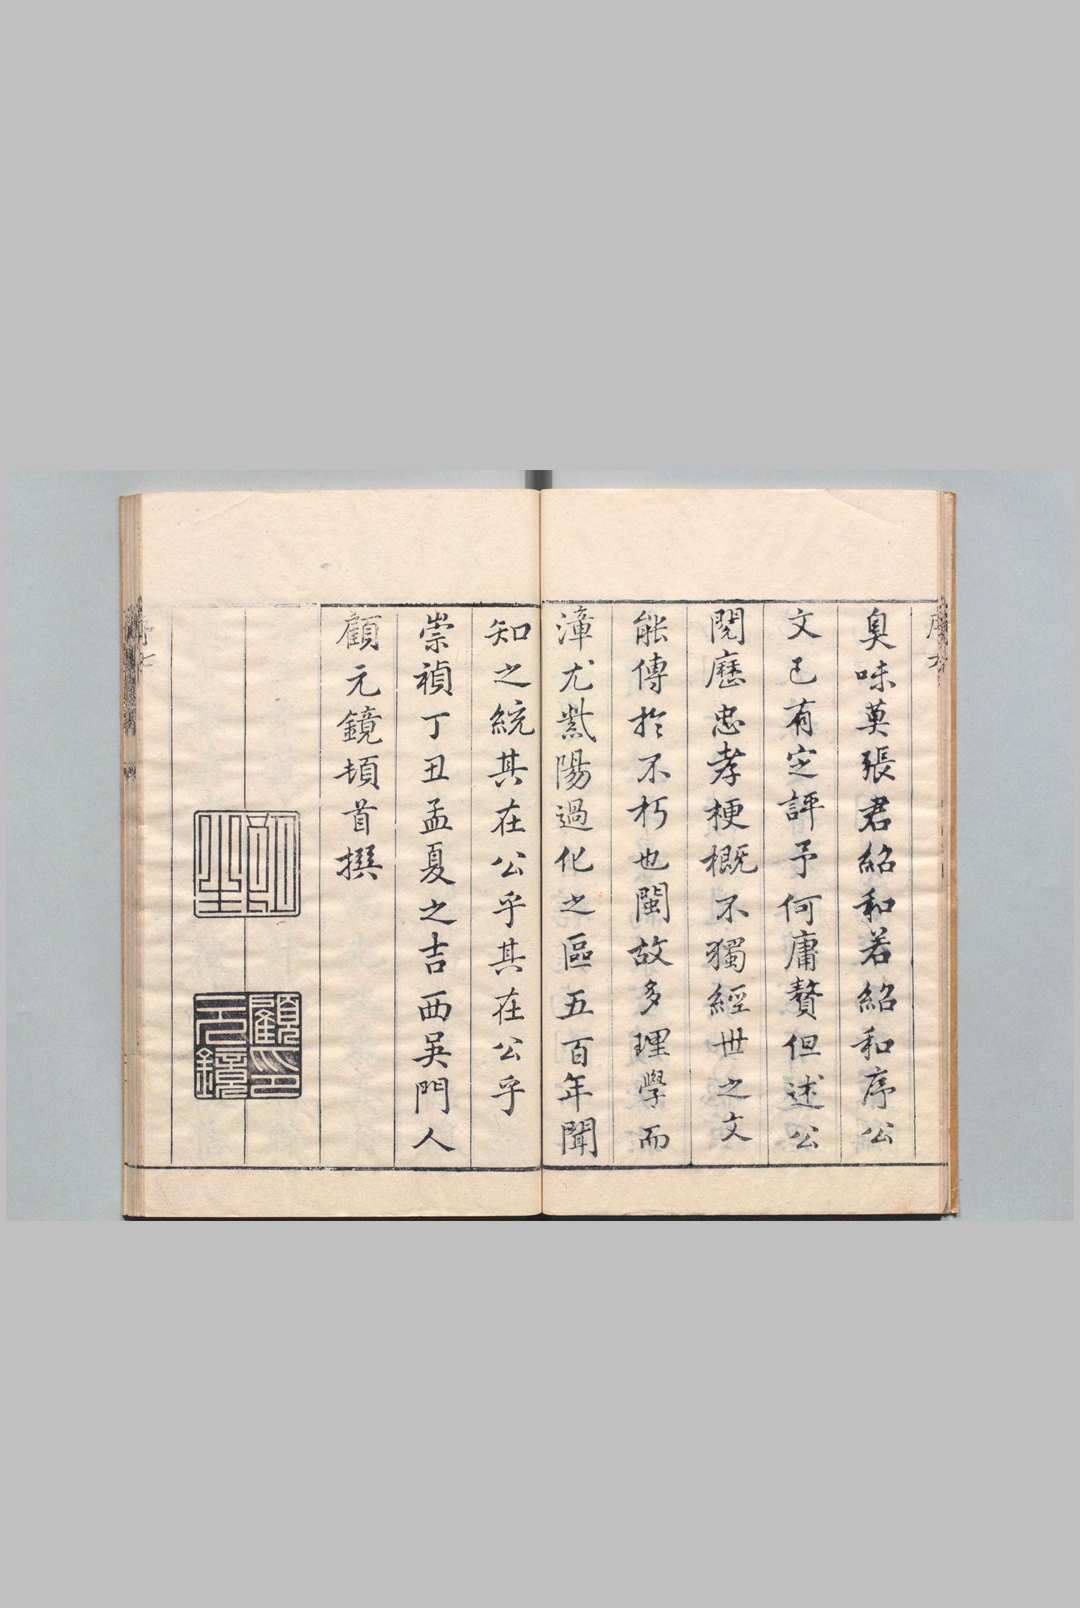 臭味莫張君紹和若紹和序公
文已有定評予何庸贅但述公
閱歷忠孝梗概不獨經世之文
能傳於不朽也閩故多理學而
漳尤紫陽過化之區五百年聞
知之統其在公乎其在公乎
崇禎丁丑孟夏之吉西吳門人
顧元鏡頓首撰
顧元鏡印